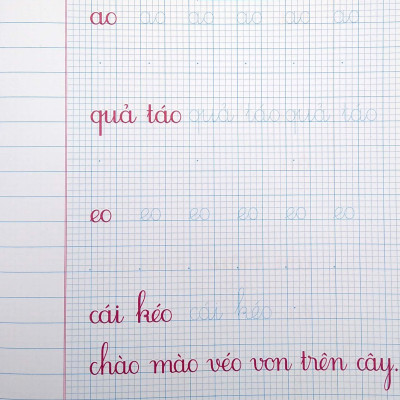 ao ao ao ao ao ao
quả táo quả táo quả táo
eo eo eo eo eo eo
cái kéo cái kéo
chào mào véo von trên cây.